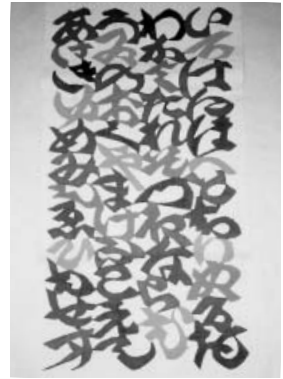 いろはにほへとちりぬるを
わかよたれそつねならむ
うゐのおくやまけふこえて
あさきゆめみしゑひもせす